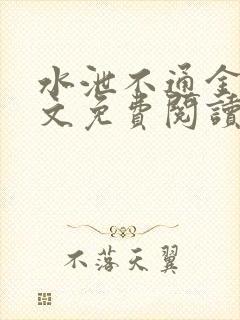 水泄不通全
文免費閱讀
不落天翼